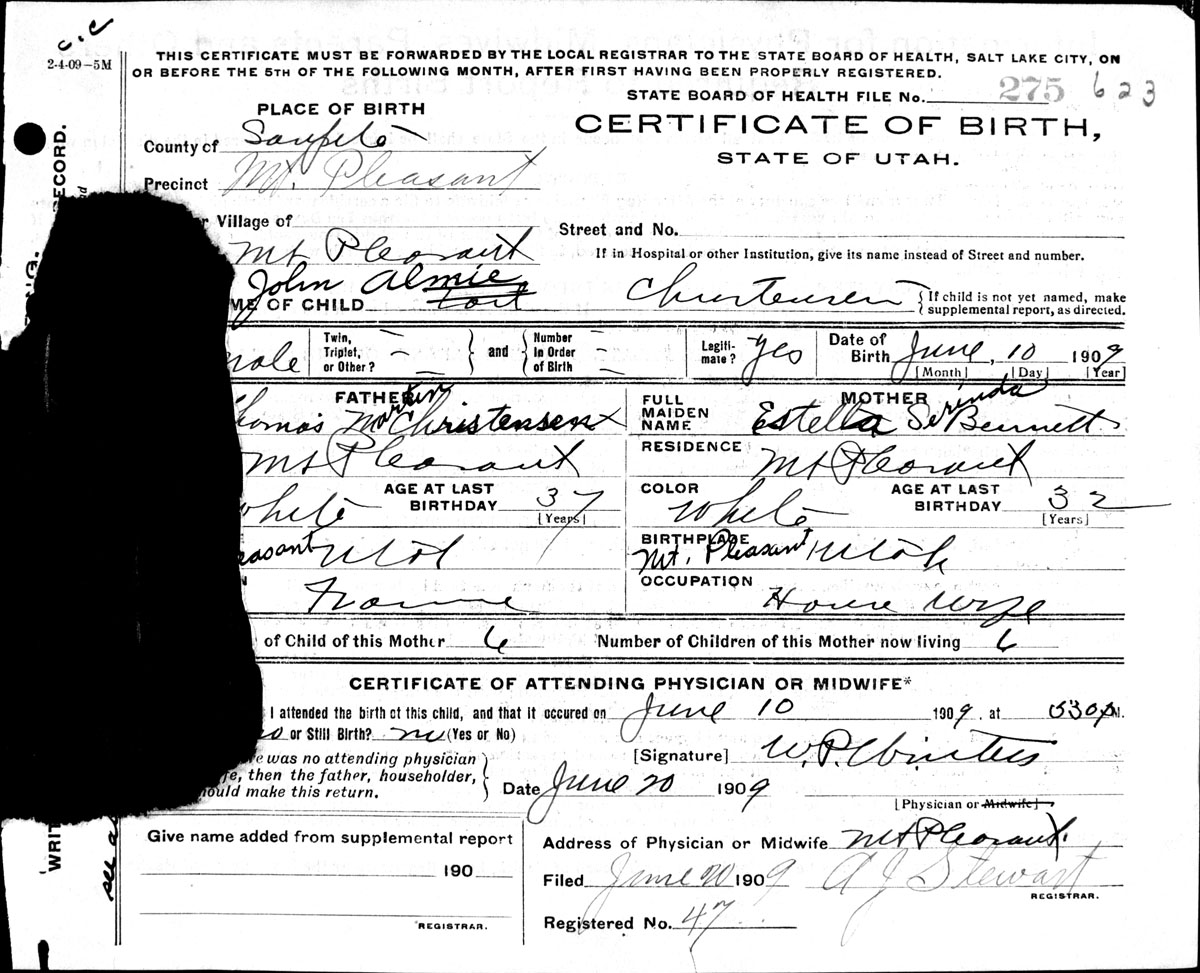 c.c
2-4-09-5M
THIS CERTIFICATE MUST BE FORWARDED BY THE LOCAL REGISTRAR TO THE STATE BOARD OF HEALTH, SALT LAKE CITY, ON
OR BEFORE THE 5TH OF THE FOLLOWING MONTH, AFTER FIRST HAVING BEEN PROPERLY REGISTERED.
STATE BOARD OF HEALTH FILE No. 275 623
PLACE OF BIRTH
CERTIFICATE OF BIRTH,
STATE OF UTAH.
County of Sanpete
Precinct Mt. Pleasant
Village of
Mt Pleasant
Street and No.
If in Hospital or other Institution, give its name instead of Street and number.
John Almie
ME OF CHILD Christensen
If child is not yet named, make
supplemental report, as directed.
male
Twin,
Triplet,
or Other?
and
Number
In Order
of Birth
Legiti-
mate? Yes
Date of
Birth June, 10 1909
[Month] [Day] [Year]
FATHER
Thomas Martin Christensen
Mt Pleasant
White
AGE AT LAST
BIRTHDAY 37
[Years]
easant Utah
Farmer
FULL
MAIDEN
NAME
MOTHER
Estella Serinda Bennett
RESIDENCE
Mt Pleasant
COLOR
White
AGE AT LAST
BIRTHDAY 32
[Years]
BIRTHPLACE
Mt. Pleasant Utah
OCCUPATION
House Wife
of Child of this Mother 6
Number of Children of this Mother now living 6
CERTIFICATE OF ATTENDING PHYSICIAN OR MIDWIFE*
I attended the birth of this child, and that it occured on June 10 1909, at 530 P M.
or Still Birth? no (Yes or No)
[Signature] W.P. Winters
re was no attending physician
fe, then the father, householder,
ould make this return.
Date June 20 1909
[Physician or Midwife]
Give name added from supplemental report
190
REGISTRAR.
Address of Physician or Midwife Mt Pleasant.
Filed June 20 1909 A J Stewart
REGISTRAR.
Registered No. 47
RECORD.
NG.
WRIT
see a